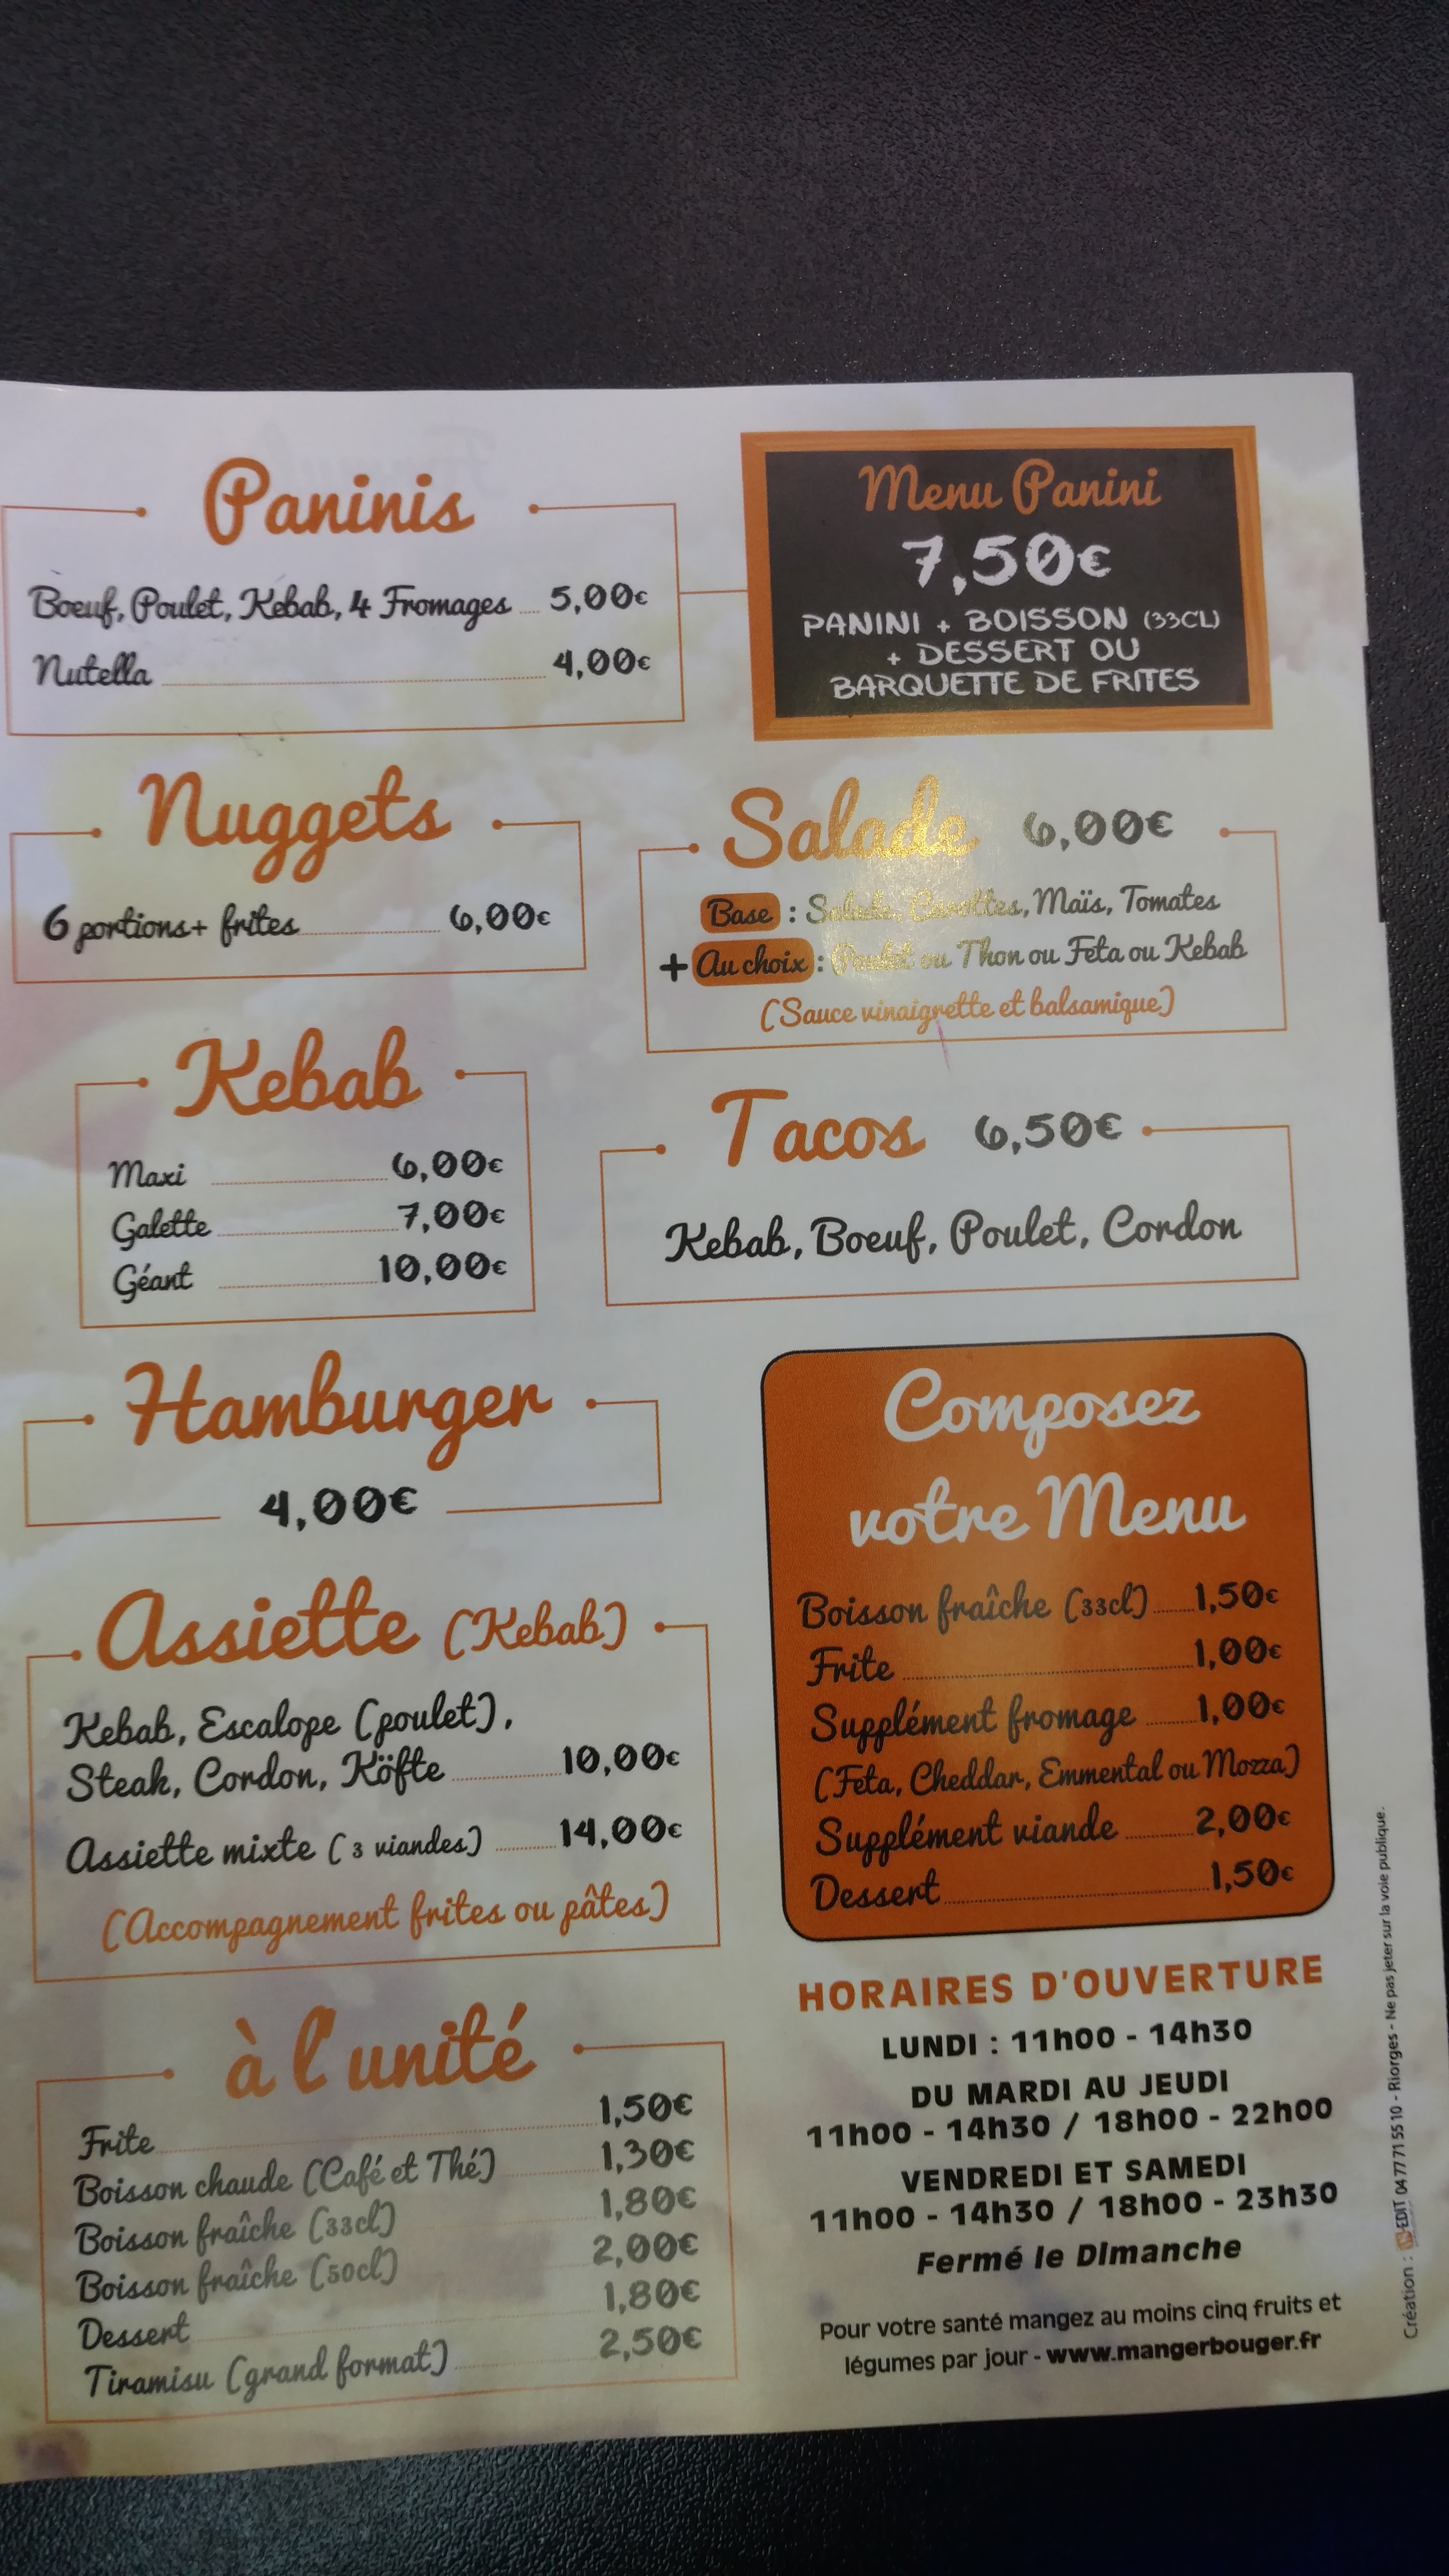 Paninis
Boeuf, Poulet, Kebab, 4 Fromages 5,00€
Nutella 4,00€
Menu Panini
7,50€
PANINI + BOISSON (33CL)
+ DESSERT OU
BARQUETTE DE FRITES
Nuggets
6 portions+ frites 6,00€
Salade 6,00€
Base : Salade, Carottes, Maïs, Tomates
+ Au choix : Poulet ou Thon ou Feta ou Kebab
(Sauce vinaigrette et balsamique)
Kebab
Maxi 6,00€
Galette 7,00€
Géant 10,00€
Tacos 6,50€
Kebab, Boeuf, Poulet, Cordon
Hamburger
4,00€
Assiette (Kebab)
Kebab, Escalope (poulet),
Steak, Cordon, Köfte 10,00€
Assiette mixte (3 viandes) 14,00€
(Accompagnement frites ou pâtes)
Composez
votre Menu
Boisson fraîche (33cl) 1,50€
Frite 1,00€
Supplément fromage 1,00€
(Feta, Cheddar, Emmental ou Mozza)
Supplément viande 2,00€
Dessert 1,50€
à l'unité
Frite 1,50€
Boisson chaude (Café et Thé) 1,30€
Boisson fraîche (33cl) 1,80€
Boisson fraîche (50cl) 2,00€
Dessert 1,80€
Tiramisu (grand format) 2,50€
HORAIRES D'OUVERTURE
LUNDI : 11h00 - 14h30
DU MARDI AU JEUDI
11h00 - 14h30 / 18h00 - 22h00
VENDREDI ET SAMEDI
11h00 - 14h30 / 18h00 - 23h30
Fermé le Dimanche
Pour votre santé mangez au moins cinq fruits et
légumes par jour - www.mangerbouger.fr
Création : EDIT 04 77 71 55 10 - Riorges - Ne pas jeter sur la voie publique.